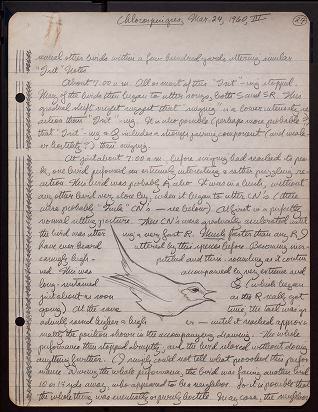 Chlorospingus, Mar. 24, 1960, III
(27)
several other birds within a few hundred yards uttering similar
"Tsit" Notes.
About 7:00 a.m. All or most of this "Tsit"-ing stopped.
Many of the birds then began to utter songs, both S and SR. This
gradual shift might suggest that "singing" is a lower intensity re
action than "Tsit"-ing. It is also possible (perhaps more probable?)
that "Tsit"-ing includes a stronger pairing component (and escape
or hostility?) than singing.
At just about 7:00 a.m., before singing had reached its pea
k, one bird performed an extremely interesting & rather puzzling re
action. This bird was probably A also. It was in a bush, without
any other bird very close by, when it began to utter CN's (these
were probable "Tsick" CN's — see below). At first in a perfectly
normal calling posture. These CN's were gradually accelerated until
the bird was utter ing a very fast R. Much faster than any R I
have ever heard uttered by this species before. Becoming incr
easingly high- pitched and thin-sounding as it contin
ued. This was accompanied by very extreme and
long-sustained (which began
just about as soon as the R really got
going). At the same time, the tail was gr
adually raised higher & high er — until it reached approxi
mately the position shown in the accompanying drawing. The whole
performance then stopped abruptly, and the bird relaxed without doing
anything further. (I simply could not tell what provoked this perfor
mance. During the whole performance, the bird was facing another bird
10 or 15 yds away, who appeared to be a neighbor. So it is possible that
the whole thing was essentially purely hostile. In any case, the neighbor